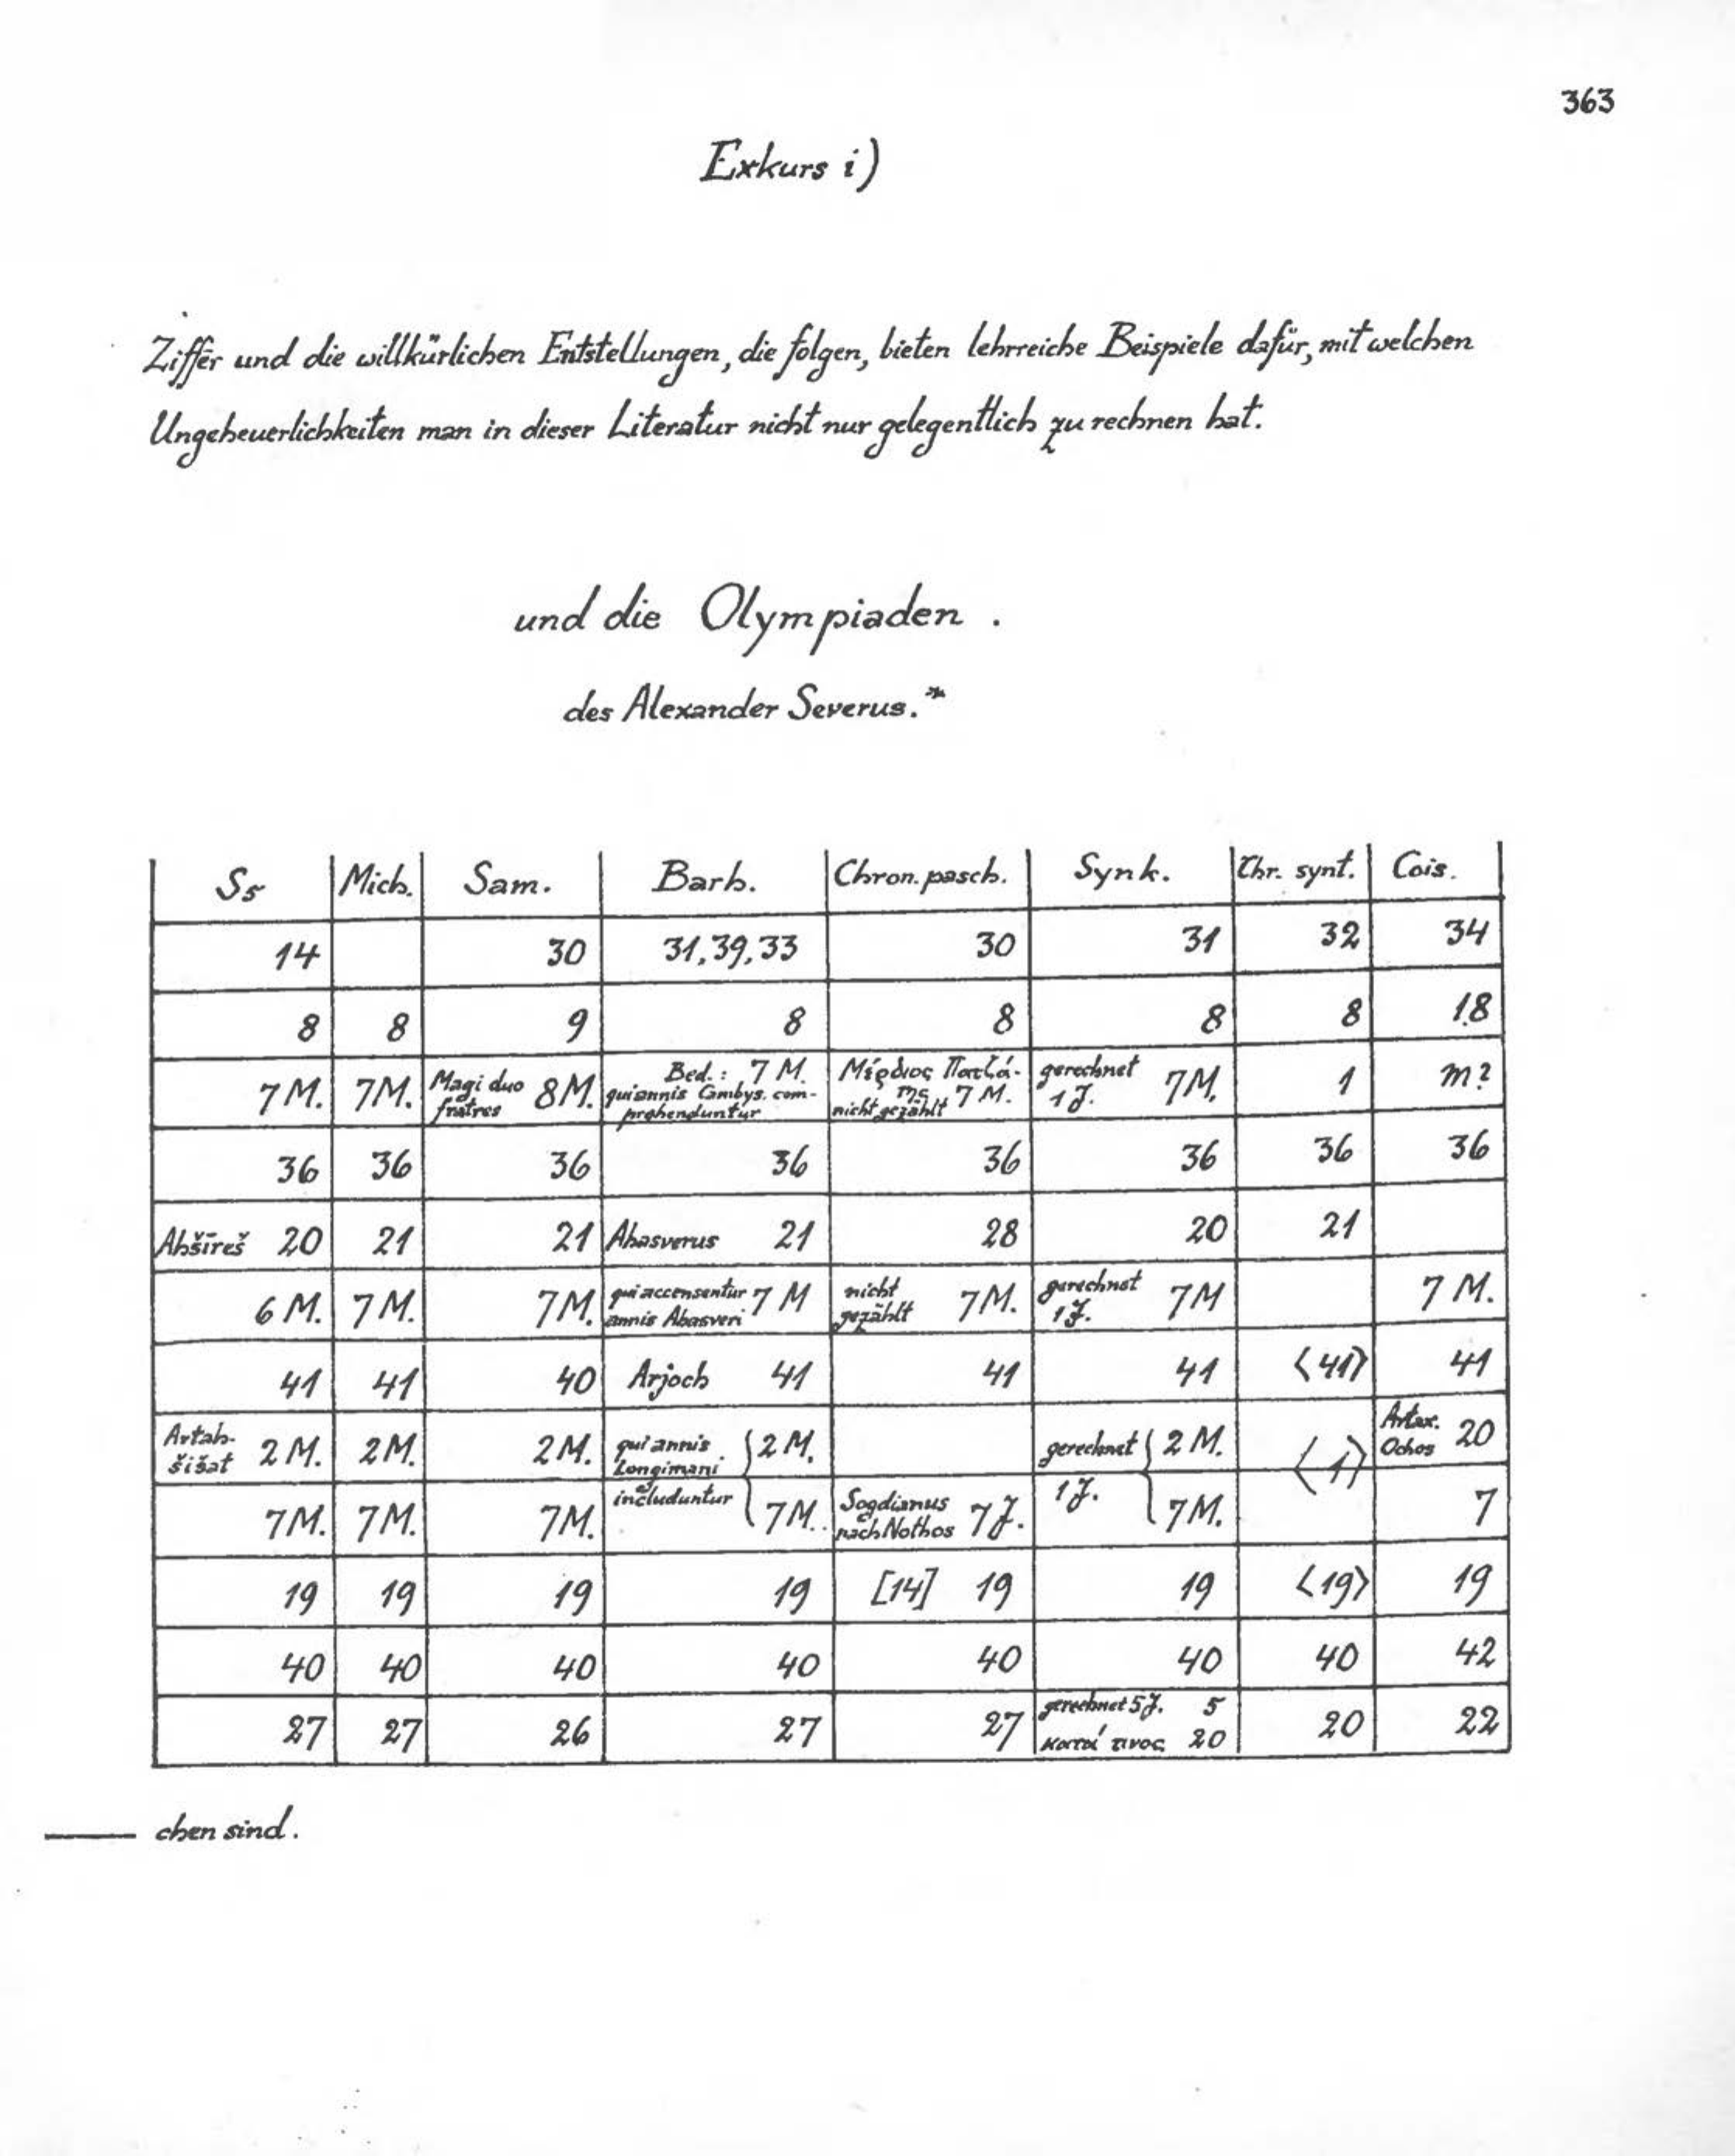 363
Exkurs i)
Ziffer und die willkürlichen Entstellungen, die folgen, bieten lehrreiche Beispiele dafür, mit welchen
Ungeheuerlichkeiten man in dieser Literatur nicht nur gelegentlich zu rechnen hat.
und die Olympiaden.
des Alexander Severus.*
Ss Mich. Sam. Barh. Chron. pasch. Synk. Chr. synt. Cois.
14 30 31, 39, 33 30 31 32 34
8 8 9 8 8 8 8 18
7 M. 7 M. Magi duo fratres 8 M. Bed.: 7 M. qui annis Cambys. comprehenduntur Μέρδιος Παζάτης nicht gezählt 7 M. gerechnet 1 J. 7 M. 1 m?
36 36 36 36 36 36 36 36
Aḥšīreš 20 21 21 Ahasverus 21 28 20 21
6 M. 7 M. 7 M. qui accensentur annis Ahasveri 7 M nicht gezählt 7 M. gerechnet 1 J. 7 M 7 M.
41 41 40 Arjoch 41 41 41 ⟨41⟩ 41
Artaḥšišat 2 M. 2 M. 2 M. qui annis Longimani includuntur { 2 M. gerechnet 1 J. { 2 M. ⟨1⟩ Artax. Ochos 20
7 M. 7 M. 7 M. 7 M. Sogdianus nach Nothos 7 J. 7 M. 7
19 19 19 19 [14] 19 19 ⟨19⟩ 19
40 40 40 40 40 40 40 42
27 27 26 27 27 gerechnet 5 J. 5 κατά τινος 20 20 22
chen sind.